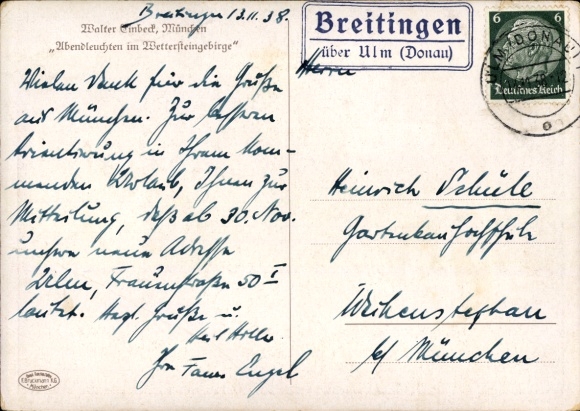 Breitingen 13.11.38.
Walter Embeck, München
„Abendleuchten im Wettersteingebirge“
Breitingen
über Ulm (Donau)
6 6
Deutsches Reich
ULM (DONAU)
Vielen Dank für die Grüße
aus München. Zur besseren
Orientierung in Ihrem kom-
menden Urlaub, Ihnen zur
Mitteilung, daß ab 30. Nov.
unsere neue Adresse
Ulm, Frauenstraße 50 I
lautet. Herzl. Grüße u.
Heil Hitler
Ihre Engel
Herrn
Heinrich Schüle
Gartenbauhochschule
Weihenstephan
b/ München
F. Bruckmann A.G.
München